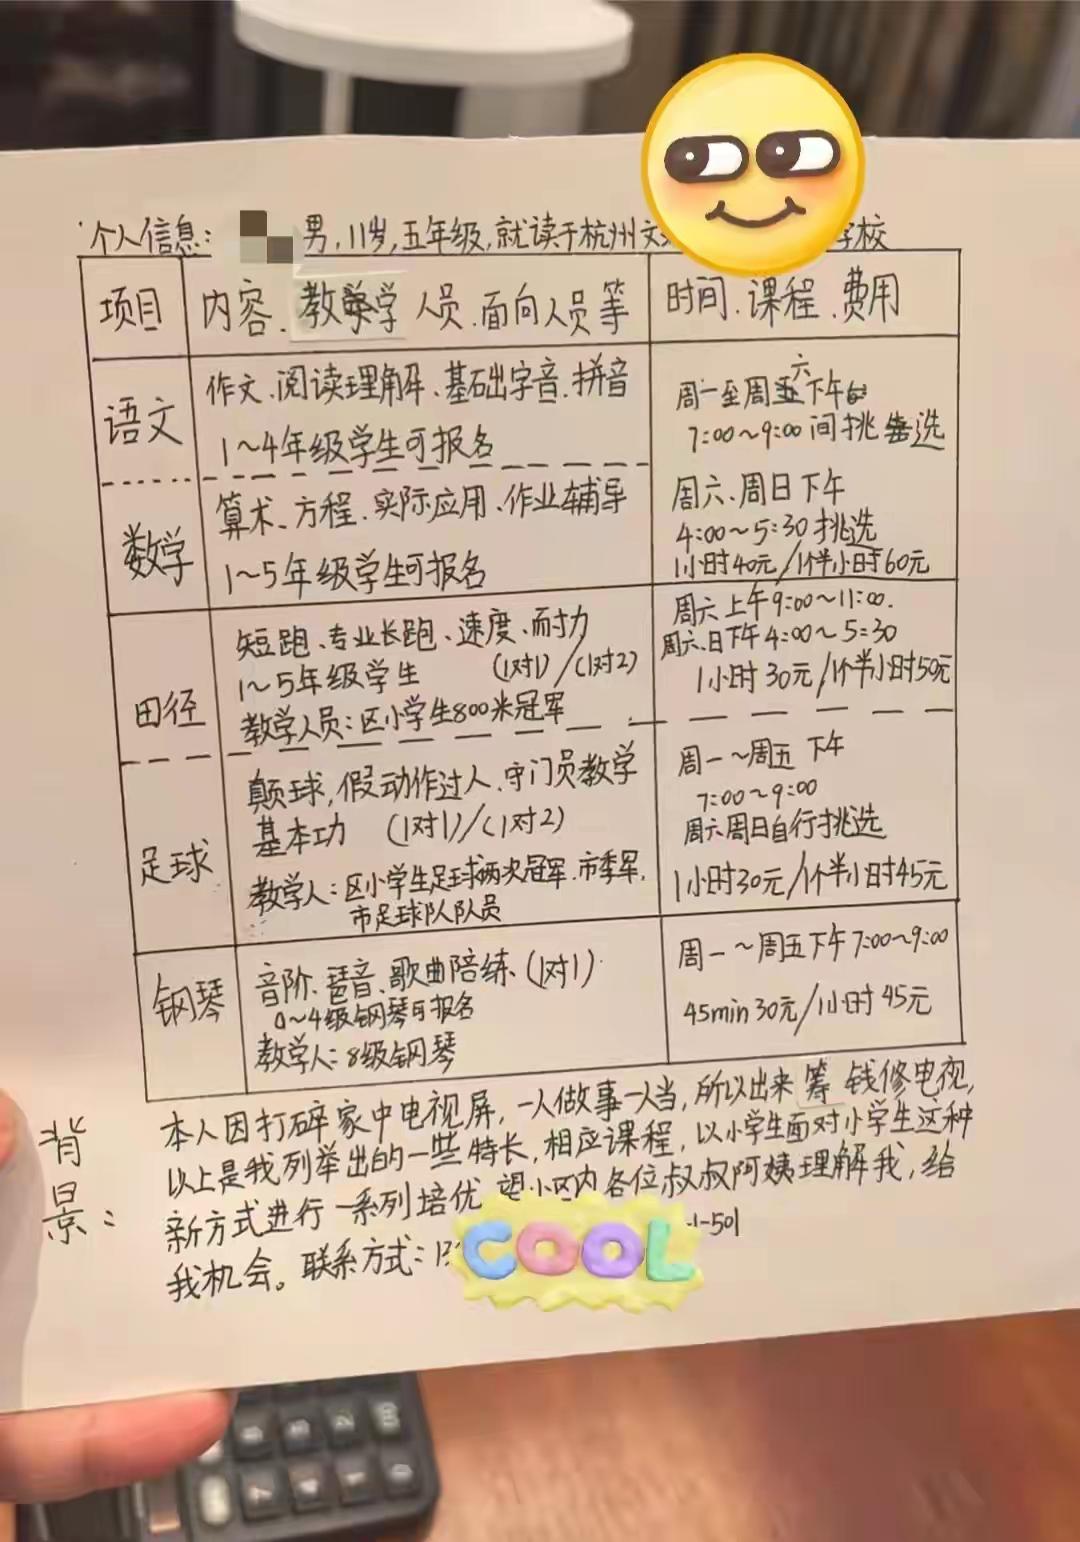 个人信息: 男,11岁,五年级,就读于杭州文 学校
项目
内容、教学 人员、面向人员等
时间、课程、费用
语文
作文、阅读理解、基础字音、拼音
1~4年级学生可报名
数学
算术、方程、实际应用、作业辅导
1~5年级学生可报名
周一至周六下午
7:00~9:00间挑选
周六、周日下午
4:00~5:30挑选
1小时40元/1个半小时60元
田径
短跑、专业长跑、速度、耐力
1~5年级学生 (1对1)/(1对2)
教学人员:区小学生800米冠军
周六上午9:00~11:00.
周六、日下午4:00~5:30
1小时30元/1个半小时50元
足球
颠球,假动作过人、守门员教学
基本功 (1对1)/(1对2)
教学人:区小学生足球两次冠军、市季军,
市足球队队员
周一~周五下午
7:00~9:00
周六周日自行挑选
1小时30元/1个半小时45元
钢琴
音阶、琶音、歌曲陪练、(1对1)
0~4级钢琴可报名
教学人:8级钢琴
周一~周五下午7:00~9:00
45min30元/1小时45元
背景:
本人因打碎家中电视屏,一人做事一人当,所以出来筹钱修电视,
以上是我列举出的一些特长,相应课程,以小学生面对小学生这种
新方式进行一系列培优 望小区内各位叔叔阿姨理解我,给
我机会。联系方式:13 -1-501
COOL